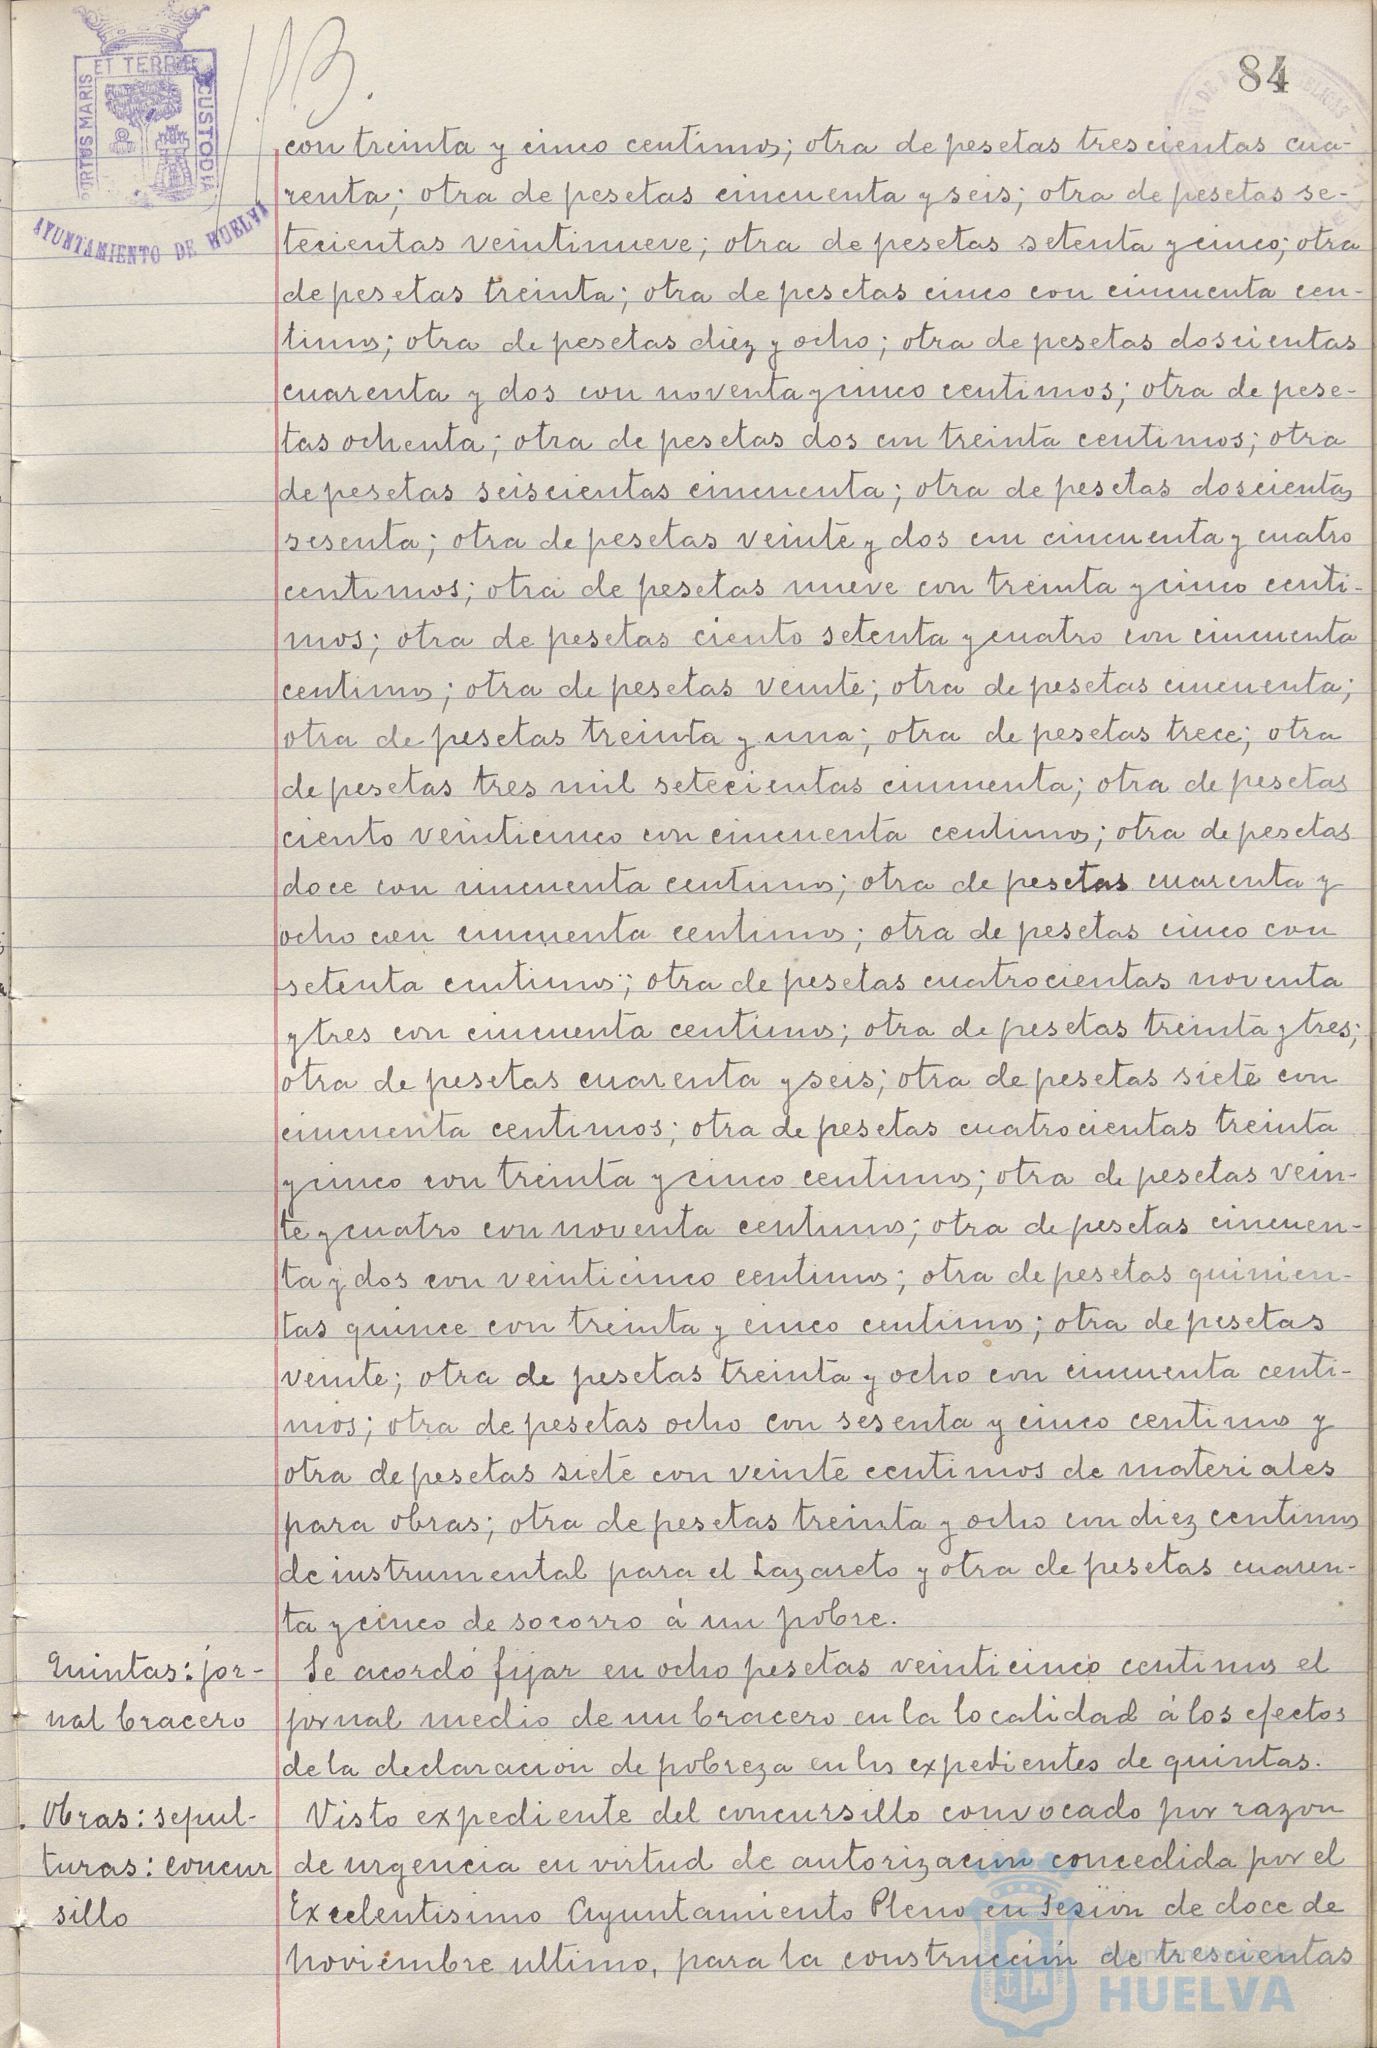 84
PORTUS MARIS ET TERRE CUSTODIA
AYUNTAMIENTO DE HUELVA
con treinta y cinco centimos; otra de pesetas trescientas cua-
renta; otra de pesetas cincuenta y seis; otra de pesetas se-
tecientas veintinueve; otra de pesetas setenta y cinco; otra
de pesetas treinta; otra de pesetas cinco con cincuenta cen-
timos; otra de pesetas diez y ocho; otra de pesetas doscientas
cuarenta y dos con noventa y cinco centimos; otra de pese-
tas ochenta; otra de pesetas dos con treinta centimos; otra
de pesetas seiscientas cincuenta; otra de pesetas doscientas
sesenta; otra de pesetas veinte y dos con cincuenta y cuatro
centimos; otra de pesetas nueve con treinta y cinco centi-
mos; otra de pesetas ciento setenta y cuatro con cincuenta
centimos; otra de pesetas veinte; otra de pesetas cincuenta;
otra de pesetas treinta y una; otra de pesetas trece; otra
de pesetas tres mil setecientas cincuenta; otra de pesetas
ciento veinticinco con cincuenta centimos; otra de pesetas
doce con cincuenta centimos; otra de pesetas cuarenta y
ocho con cincuenta centimos; otra de pesetas cinco con
setenta centimos; otra de pesetas cuatrocientas noventa
y tres con cincuenta centimos; otra de pesetas treinta y tres;
otra de pesetas cuarenta y seis; otra de pesetas siete con
cincuenta centimos; otra de pesetas cuatrocientas treinta
y cinco con treinta y cinco centimos; otra de pesetas vein-
te y cuatro con noventa centimos; otra de pesetas cincuen-
ta y dos con veinticinco centimos; otra de pesetas quinien-
tas quince con treinta y cinco centimos; otra de pesetas
veinte; otra de pesetas treinta y ocho con cincuenta centi-
mos; otra de pesetas ocho con sesenta y cinco centimos y
otra de pesetas siete con veinte centimos de materiales
para obras; otra de pesetas treinta y ocho con diez centimos
de instrumental para el Lazareto y otra de pesetas cuaren-
ta y cinco de socorro á un pobre.
Quintas: jor-
nal bracero
Se acordó fijar en ocho pesetas veinticinco centimos el
jornal medio de un bracero en la localidad á los efectos
de la declaración de pobreza en los expedientes de quintas.
Obras: sepul-
turas: concur
sillo
Visto expediente del concursillo convocado por razon
de urgencia en virtud de autorización concedida por el
Excelentisimo Ayuntamiento Pleno en Sesión de doce de
Noviembre ultimo, para la construcción de trescientas
Ayuntamiento de
HUELVA